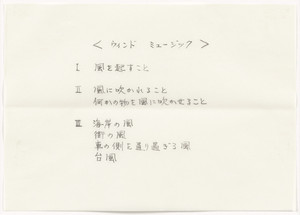 ＜ウィンド　ミュージック＞
Ⅰ　風を起すこと
Ⅱ　風に吹かれること
何かの物を風に吹かせること
Ⅲ　海岸の風
街の風
車の側を通り過ぎる風
台風